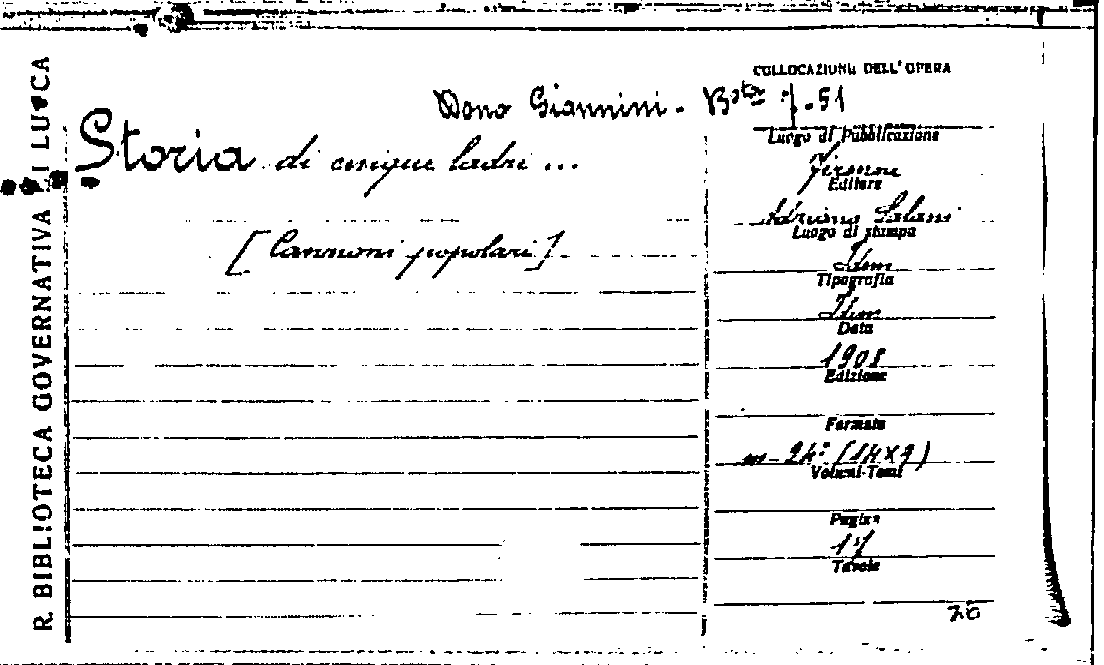 R. BIBLIOTECA GOVERNATIVA DI LUCCA
COLLOCAZIONE DELL'OPERA
Dono Giannini - B.sta 7.51
Storia di cinque ladri ...
[Canzoni popolari]
Luogo di Pubblicazione
Firenze
Editore
Adriano Salani
Luogo di stampa
Idem
Tipografia
Idem
Data
1908
Edizione
Formato
in-24° (14x9)
Volumi-Tomi
Pagine
17
Tavole